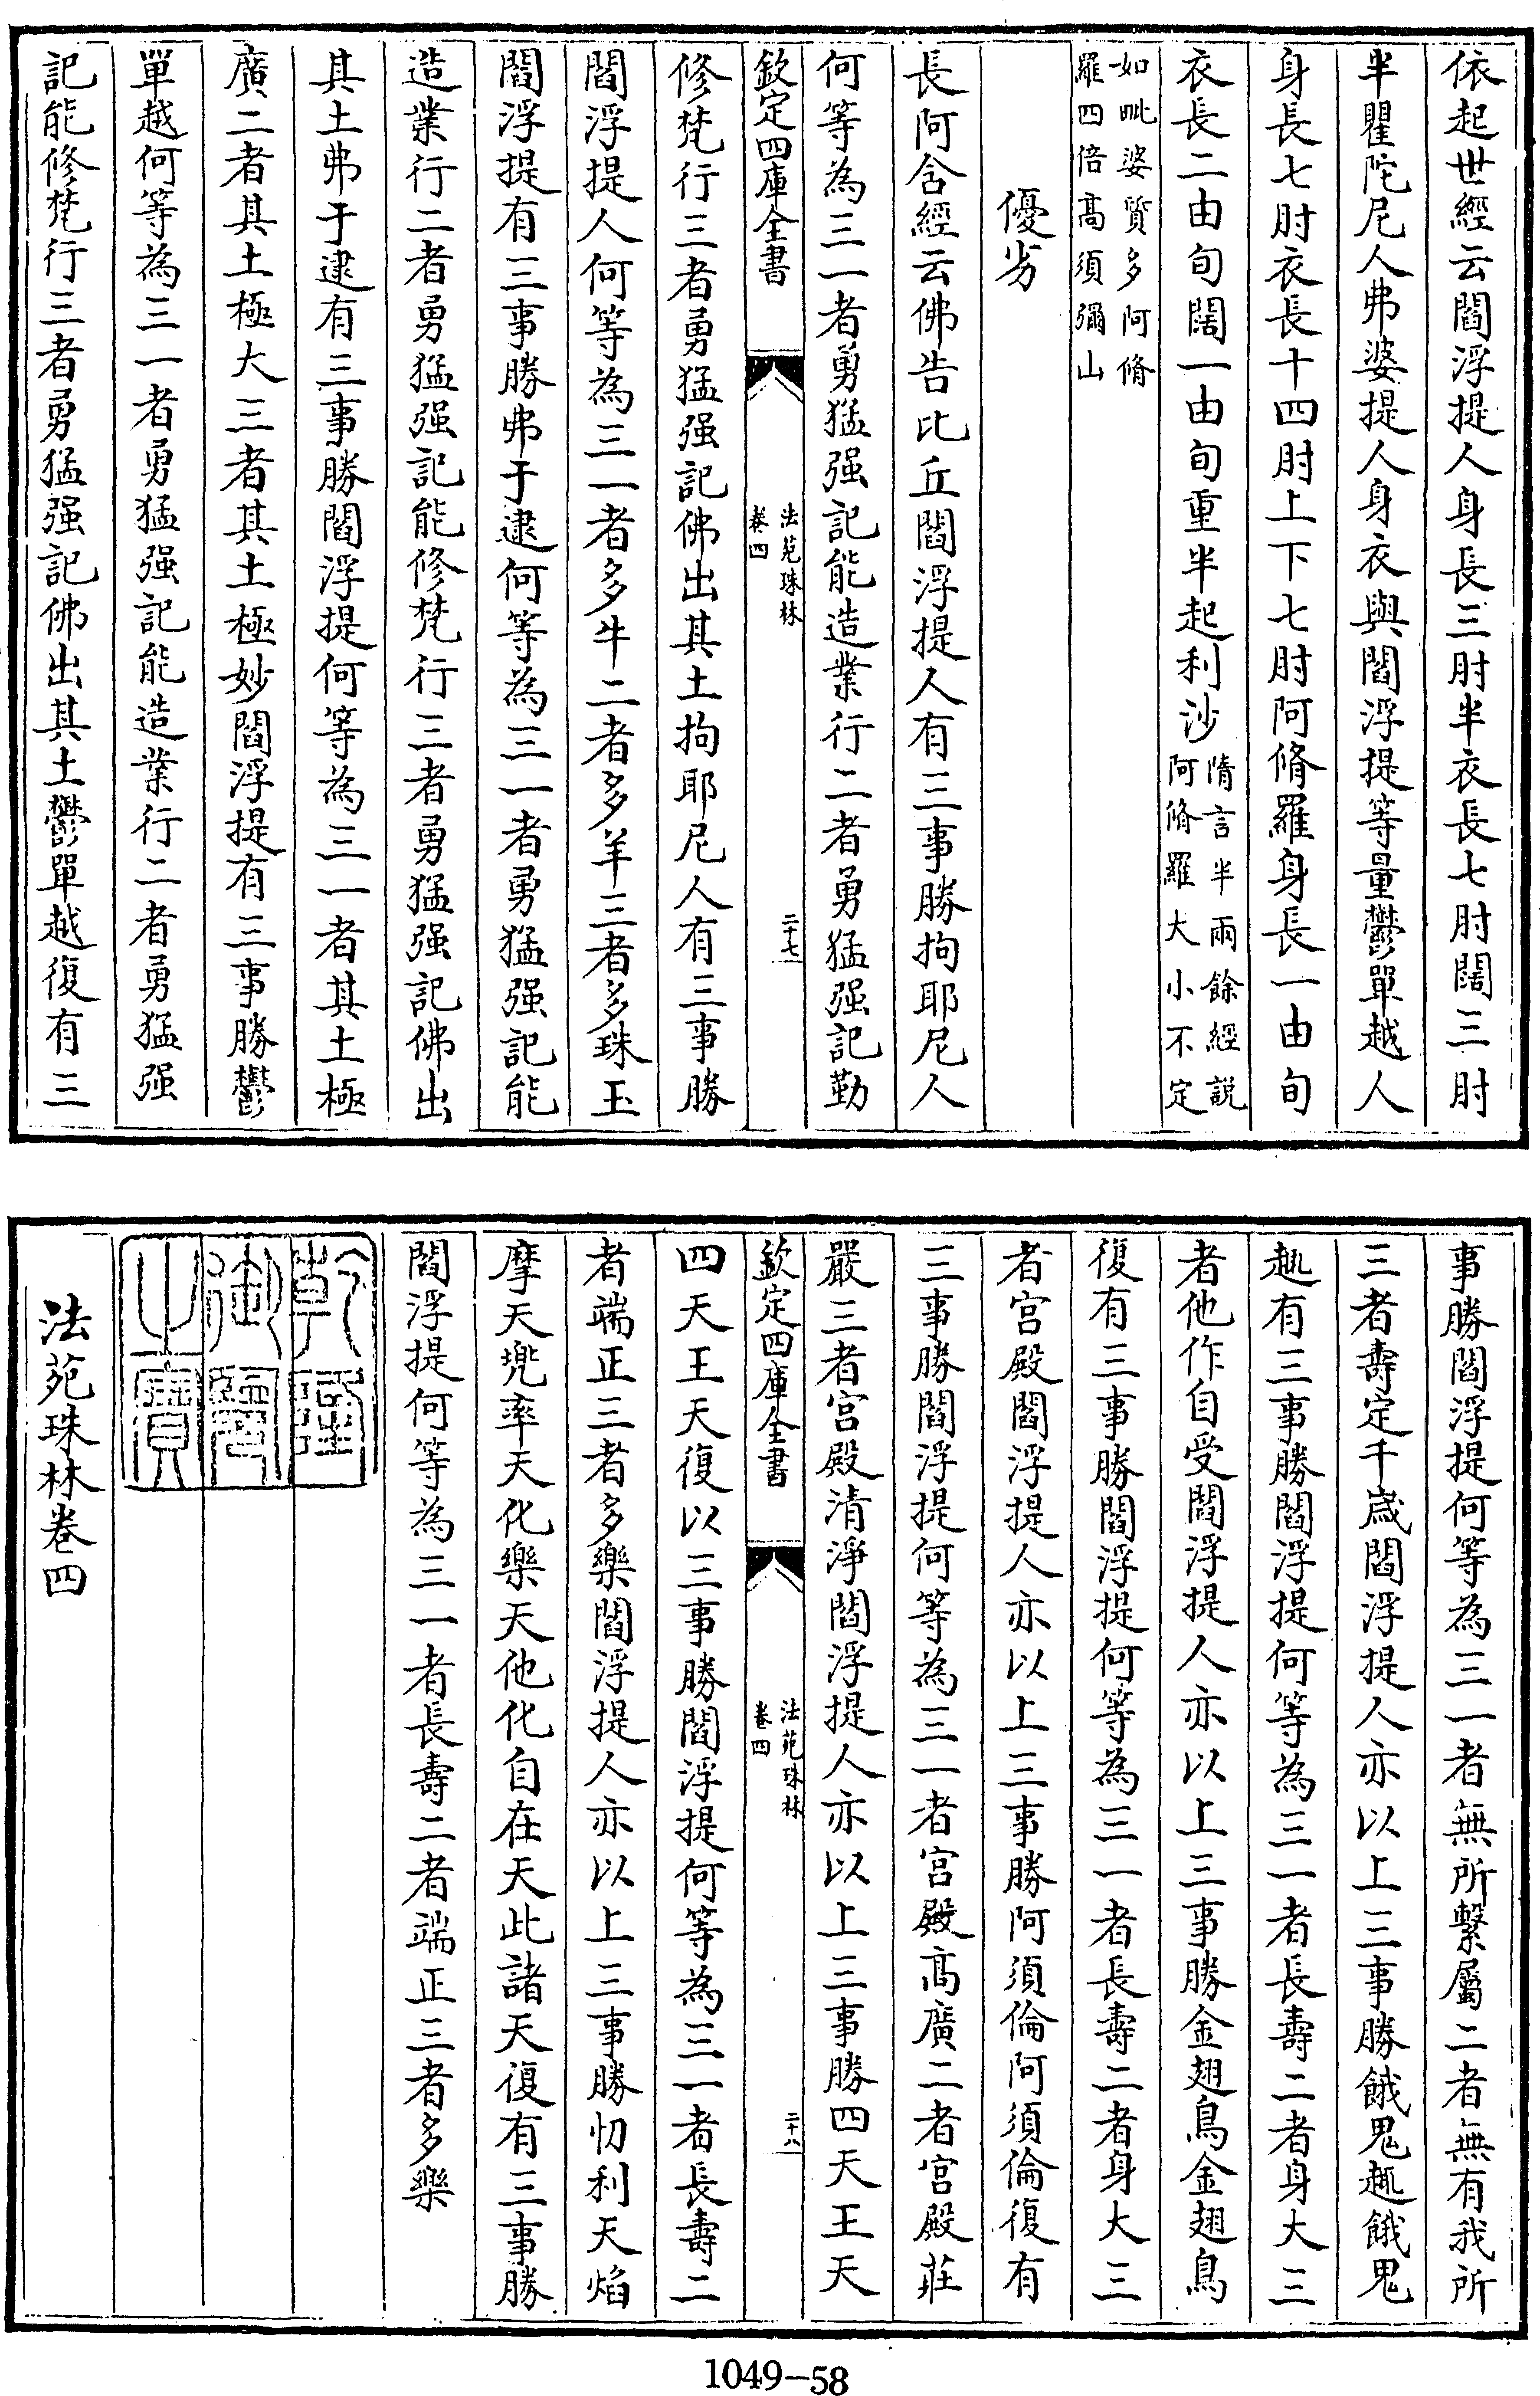 依起世經云閻浮提人身長三肘半衣長七肘闊三肘
半瞿陀尼人弗婆提人身衣與閻浮提等量鬱單越人
身長七肘衣長十四肘上下七肘阿脩羅身長一由旬
衣長二由旬闊一由旬重半起利沙隋言半兩餘經說
阿脩羅大小不定
如毗婆質多阿脩
羅四倍高須彌山
優劣
長阿含經云佛告比丘閻浮提人有三事勝拘耶尼人
何等為三一者勇猛强記能造業行二者勇猛强記勤
欽定四庫全書
法苑珠林
卷四
二十七
修梵行三者勇猛强記佛出其土拘耶尼人有三事勝
閻浮提人何等為三一者多牛二者多羊三者多珠玉
閻浮提有三事勝弗于逮何等為三一者勇猛强記能
造業行二者勇猛强記能修梵行三者勇猛强記佛出
其土弗于逮有三事勝閻浮提何等為三一者其土極
廣二者其土極大三者其土極妙閻浮提有三事勝鬱
單越何等為三一者勇猛强記能造業行二者勇猛强
記能修梵行三者勇猛强記佛出其土鬱單越復有三
事勝閻浮提何等為三一者無所繫屬二者無有我所
三者壽定千歲閻浮提人亦以上三事勝餓鬼趣餓鬼
趣有三事勝閻浮提何等為三一者長壽二者身大三
者他作自受閻浮提人亦以上三事勝金翅鳥金翅鳥
復有三事勝閻浮提何等為三一者長壽二者身大三
者宮殿閻浮提人亦以上三事勝阿須倫阿須倫復有
三事勝閻浮提何等為三一者宮殿高廣二者宮殿莊
嚴三者宮殿清淨閻浮提人亦以上三事勝四天王天
欽定四庫全書
法苑珠林
卷四
二十八
四天王天復以三事勝閻浮提何等為三一者長壽二
者端正三者多樂閻浮提人亦以上三事勝忉利天焰
摩天兜率天化樂天他化自在天此諸天復有三事勝
閻浮提何等為三一者長壽二者端正三者多樂
乾隆
御覽
之寶
法苑珠林卷四
1049-58